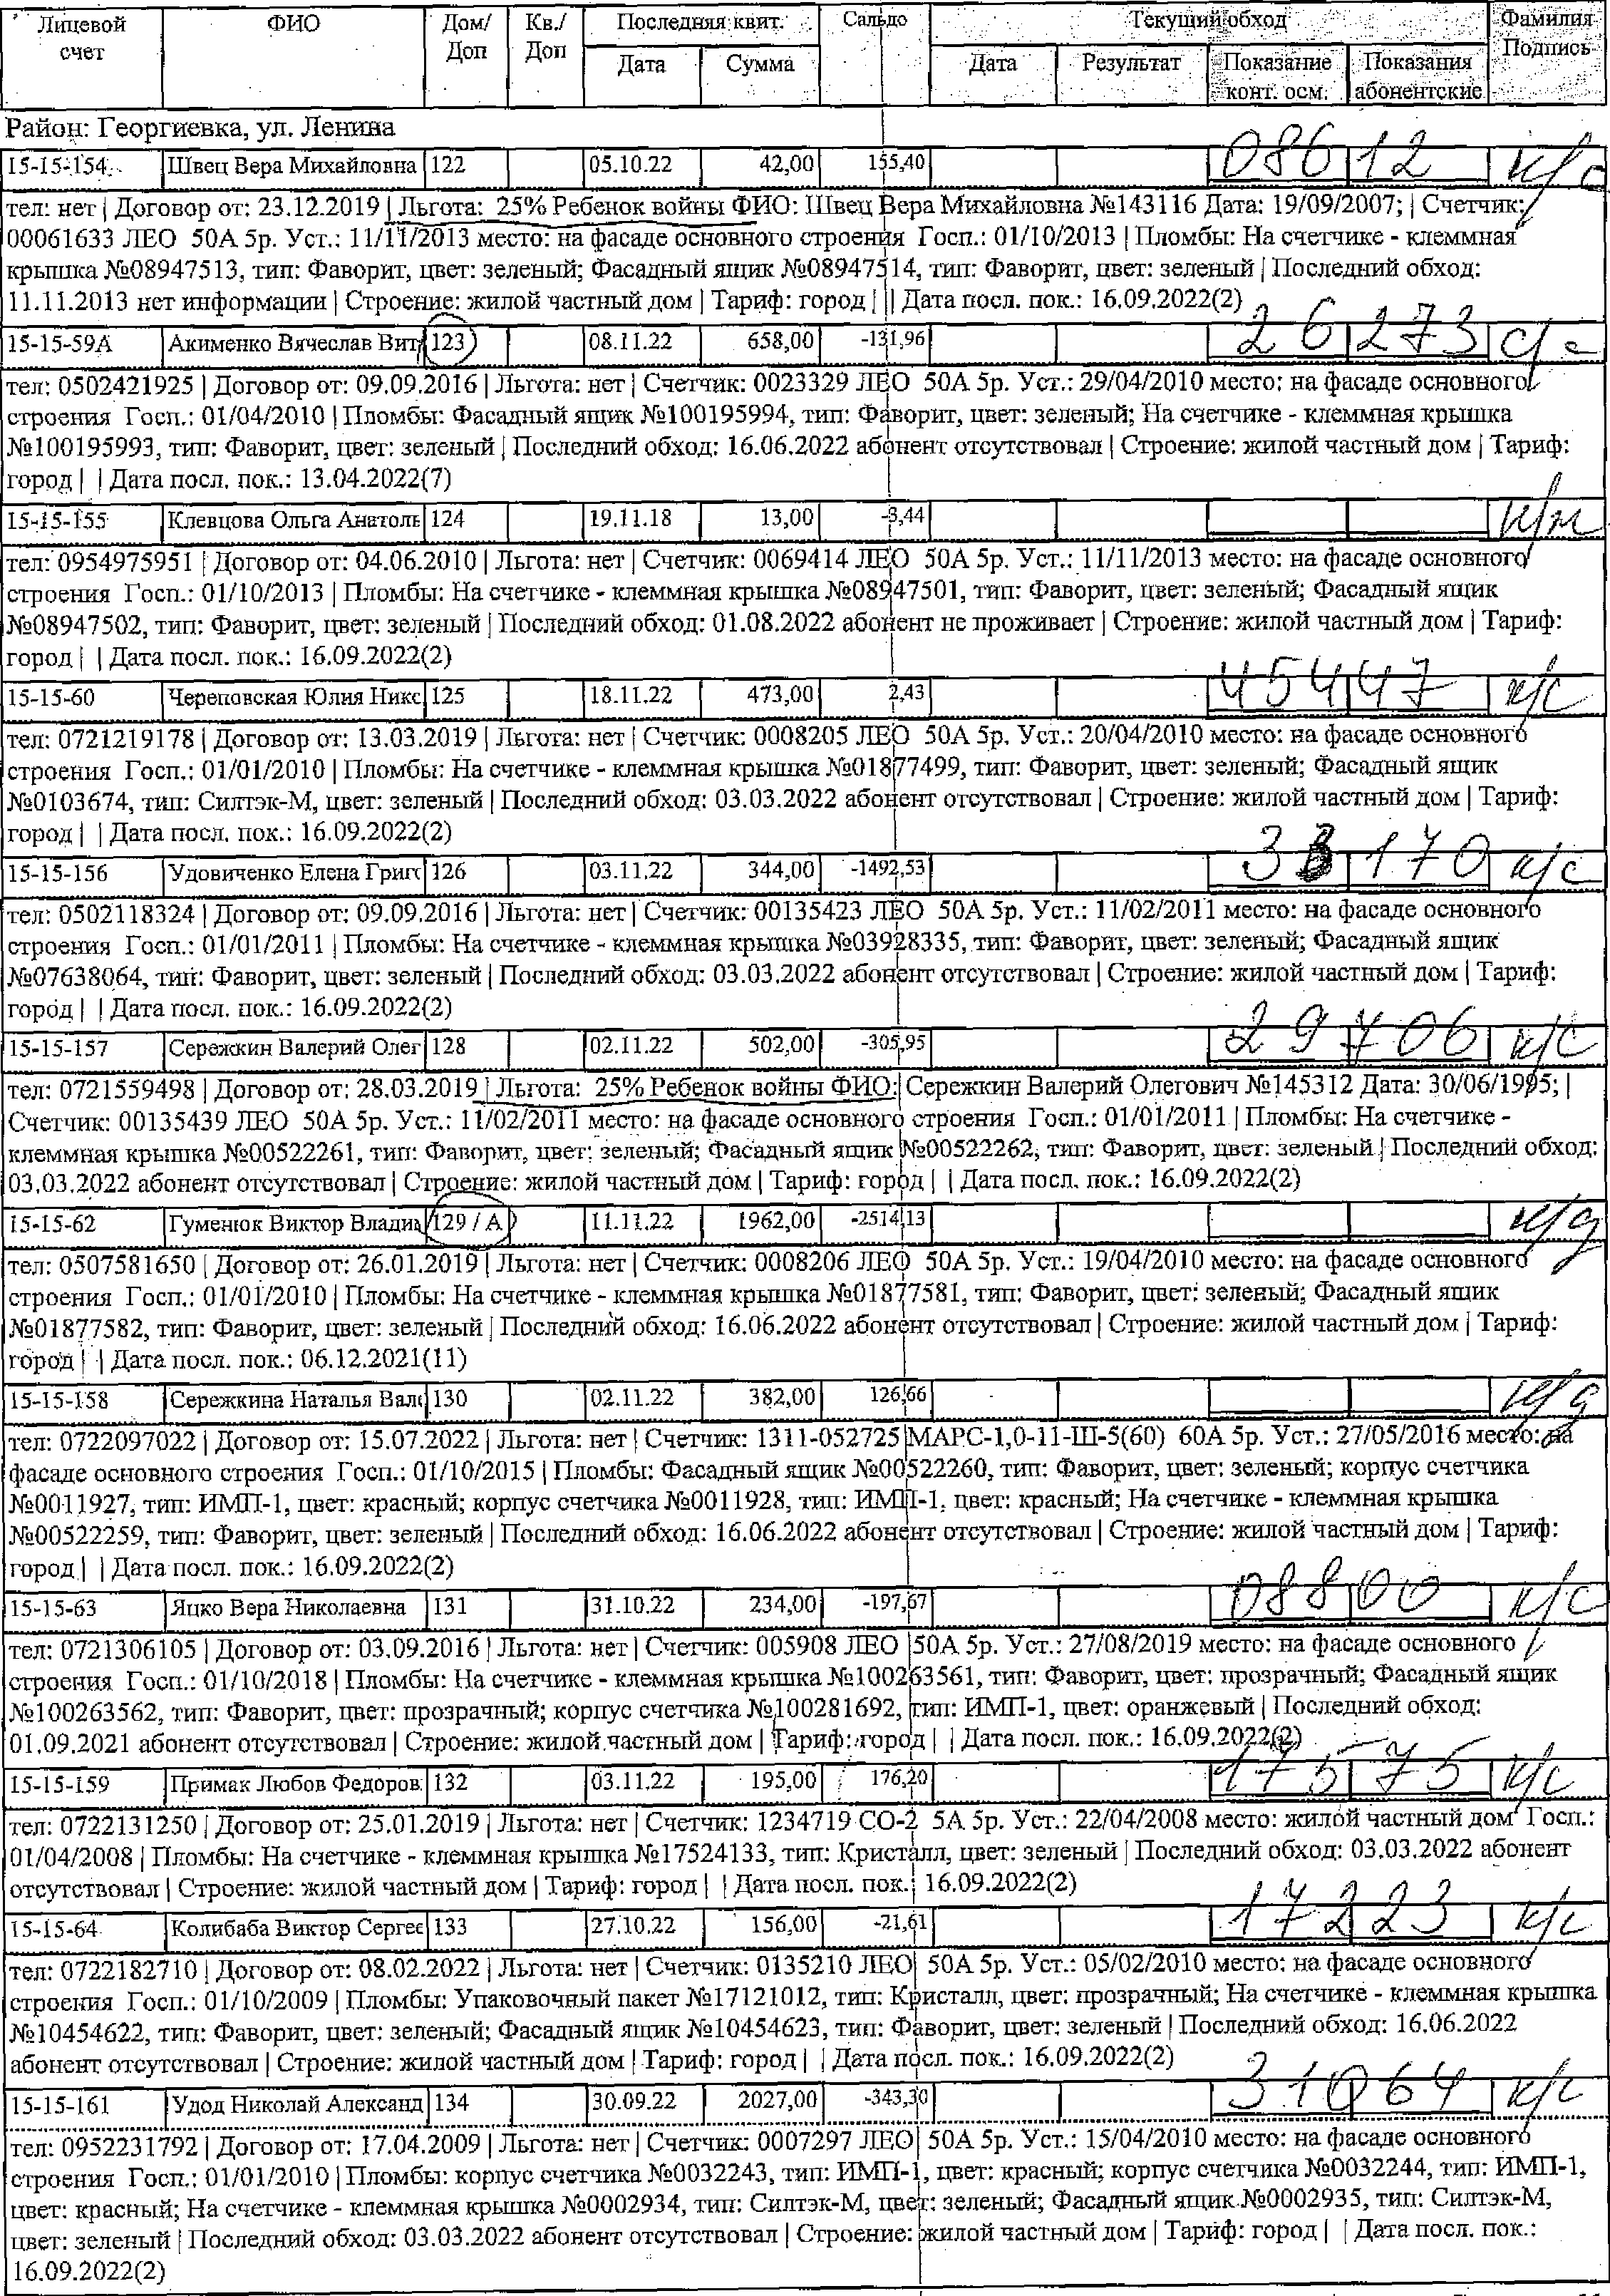 Лицевой счет | ФИО | Дом/ Доп | Кв./ Доп | Последняя квит. | Сальдо | Текущий обход | Фамилия Подпись
Дата | Сумма | Дата | Результат | Показание конт. осм. | Показания абонентские
Район: Георгиевка, ул. Ленина
15-15-154 | Швец Вера Михайловна | 122 | 05.10.22 | 42,00 | 155,40 | 08612 | к/с
тел: нет | Договор от: 23.12.2019 | Льгота: 25% Ребенок войны ФИО: Швец Вера Михайловна №143116 Дата: 19/09/2007; | Счетчик:
00061633 ЛЕО 50А 5р. Уст.: 11/11/2013 место: на фасаде основного строения Госп.: 01/10/2013 | Пломбы: На счетчике - клеммная
крышка №08947513, тип: Фаворит, цвет: зеленый; Фасадный ящик №08947514, тип: Фаворит, цвет: зеленый | Последний обход:
11.11.2013 нет информации | Строение: жилой частный дом | Тариф: город | | | Дата посл. пок.: 16.09.2022(2)
15-15-59А | Акименко Вячеслав Вит | 123 | 08.11.22 | 658,00 | -131,96 | 26273 | с/с
тел: 0502421925 | Договор от: 09.09.2016 | Льгота: нет | Счетчик: 0023329 ЛЕО 50А 5р. Уст.: 29/04/2010 место: на фасаде основного
строения Госп.: 01/04/2010 | Пломбы: Фасадный ящик №100195994, тип: Фаворит, цвет: зеленый; На счетчике - клеммная крышка
№100195993, тип: Фаворит, цвет: зеленый | Последний обход: 16.06.2022 абонент отсутствовал | Строение: жилой частный дом | Тариф:
город | | Дата посл. пок.: 13.04.2022(7)
15-15-155 | Клевцова Ольга Анатоль | 124 | 19.11.18 | 13,00 | -3,44 | н/ж
тел: 0954975951 | Договор от: 04.06.2010 | Льгота: нет | Счетчик: 0069414 ЛЕО 50А 5р. Уст.: 11/11/2013 место: на фасаде основного
строения Госп.: 01/10/2013 | Пломбы: На счетчике - клеммная крышка №08947501, тип: Фаворит, цвет: зеленый; Фасадный ящик
№08947502, тип: Фаворит, цвет: зеленый | Последний обход: 01.08.2022 абонент не проживает | Строение: жилой частный дом | Тариф:
город | | Дата посл. пок.: 16.09.2022(2)
15-15-60 | Череповская Юлия Никс | 125 | 18.11.22 | 473,00 | 2,43 | 45447 | к/с
тел: 0721219178 | Договор от: 13.03.2019 | Льгота: нет | Счетчик: 0008205 ЛЕО 50А 5р. Уст.: 20/04/2010 место: на фасаде основного
строения Госп.: 01/01/2010 | Пломбы: На счетчике - клеммная крышка №01877499, тип: Фаворит, цвет: зеленый; Фасадный ящик
№0103674, тип: Силтэк-М, цвет: зеленый | Последний обход: 03.03.2022 абонент отсутствовал | Строение: жилой частный дом | Тариф:
город | | Дата посл. пок.: 16.09.2022(2)
15-15-156 | Удовиченко Елена Григс | 126 | 03.11.22 | 344,00 | -1492,53 | 33170 | к/с
тел: 0502118324 | Договор от: 09.09.2016 | Льгота: нет | Счетчик: 00135423 ЛЕО 50А 5р. Уст.: 11/02/2011 место: на фасаде основного
строения Госп.: 01/01/2011 | Пломбы: На счетчике - клеммная крышка №03928335, тип: Фаворит, цвет: зеленый; Фасадный ящик
№07638064, тип: Фаворит, цвет: зеленый | Последний обход: 03.03.2022 абонент отсутствовал | Строение: жилой частный дом | Тариф:
город | | Дата посл. пок.: 16.09.2022(2)
15-15-157 | Сережкин Валерий Олег | 128 | 02.11.22 | 502,00 | -305,95 | 29706 | к/с
тел: 0721559498 | Договор от: 28.03.2019 | Льгота: 25% Ребенок войны ФИО: Сережкин Валерий Олегович №145312 Дата: 30/06/1995; |
Счетчик: 00135439 ЛЕО 50А 5р. Уст.: 11/02/2011 место: на фасаде основного строения Госп.: 01/01/2011 | Пломбы: На счетчике -
клеммная крышка №00522261, тип: Фаворит, цвет: зеленый; Фасадный ящик №00522262, тип: Фаворит, цвет: зеленый | Последний обход:
03.03.2022 абонент отсутствовал | Строение: жилой частный дом | Тариф: город | | Дата посл. пок.: 16.09.2022(2)
15-15-62 | Гуменюк Виктор Влади | 129 / А | 11.11.22 | 1962,00 | -2514,13 | н/д
тел: 0507581650 | Договор от: 26.01.2019 | Льгота: нет | Счетчик: 0008206 ЛЕО 50А 5р. Уст.: 19/04/2010 место: на фасаде основного
строения Госп.: 01/01/2010 | Пломбы: На счетчике - клеммная крышка №01877581, тип: Фаворит, цвет: зеленый; Фасадный ящик
№01877582, тип: Фаворит, цвет: зеленый | Последний обход: 16.06.2022 абонент отсутствовал | Строение: жилой частный дом | Тариф:
город | | Дата посл. пок.: 06.12.2021(11)
15-15-158 | Сережкина Наталья Вал | 130 | 02.11.22 | 382,00 | 126,66 | н/д
тел: 0722097022 | Договор от: 15.07.2022 | Льгота: нет | Счетчик: 1311-052725 МАРС-1,0-11-Ш-5(60) 60А 5р. Уст.: 27/05/2016 место: на
фасаде основного строения Госп.: 01/10/2015 | Пломбы: Фасадный ящик №00522260, тип: Фаворит, цвет: зеленый; корпус счетчика
№0011927, тип: ИМП-1, цвет: красный; корпус счетчика №0011928, тип: ИМП-1, цвет: красный; На счетчике - клеммная крышка
№00522259, тип: Фаворит, цвет: зеленый | Последний обход: 16.06.2022 абонент отсутствовал | Строение: жилой частный дом | Тариф:
город | | Дата посл. пок.: 16.09.2022(2)
15-15-63 | Яцко Вера Николаевна | 131 | 31.10.22 | 234,00 | -197,67 | 08800 | к/с
тел: 0721306105 | Договор от: 03.09.2016 | Льгота: нет | Счетчик: 005908 ЛЕО 50А 5р. Уст.: 27/08/2019 место: на фасаде основного
строения Госп.: 01/10/2018 | Пломбы: На счетчике - клеммная крышка №100263561, тип: Фаворит, цвет: прозрачный; Фасадный ящик
№100263562, тип: Фаворит, цвет: прозрачный; корпус счетчика №100281692, тип: ИМП-1, цвет: оранжевый | Последний обход:
01.09.2021 абонент отсутствовал | Строение: жилой частный дом | Тариф: город | | Дата посл. пок.: 16.09.2022(2)
15-15-159 | Примак Любов Федоров | 132 | 03.11.22 | 195,00 | 176,20 | 17575 | к/с
тел: 0722131250 | Договор от: 25.01.2019 | Льгота: нет | Счетчик: 1234719 СО-2 5А 5р. Уст.: 22/04/2008 место: жилой частный дом Госп.:
01/04/2008 | Пломбы: На счетчике - клеммная крышка №17524133, тип: Кристалл, цвет: зеленый | Последний обход: 03.03.2022 абонент
отсутствовал | Строение: жилой частный дом | Тариф: город | | Дата посл. пок.: 16.09.2022(2)
15-15-64 | Колибаба Виктор Сергес | 133 | 27.10.22 | 156,00 | -21,61 | 17223 | к/с
тел: 0722182710 | Договор от: 08.02.2022 | Льгота: нет | Счетчик: 0135210 ЛЕО 50А 5р. Уст.: 05/02/2010 место: на фасаде основного
строения Госп.: 01/10/2009 | Пломбы: Упаковочный пакет №17121012, тип: Кристалл, цвет: прозрачный; На счетчике - клеммная крышка
№10454622, тип: Фаворит, цвет: зеленый; Фасадный ящик №10454623, тип: Фаворит, цвет: зеленый | Последний обход: 16.06.2022
абонент отсутствовал | Строение: жилой частный дом | Тариф: город | | Дата посл. пок.: 16.09.2022(2)
15-15-161 | Удод Николай Александ | 134 | 30.09.22 | 2027,00 | -343,30 | 31064 | к/с
тел: 0952231792 | Договор от: 17.04.2009 | Льгота: нет | Счетчик: 0007297 ЛЕО 50А 5р. Уст.: 15/04/2010 место: на фасаде основного
строения Госп.: 01/01/2010 | Пломбы: корпус счетчика №0032243, тип: ИМП-1, цвет: красный; корпус счетчика №0032244, тип: ИМП-1,
цвет: красный; На счетчике - клеммная крышка №0002934, тип: Силтэк-М, цвет: зеленый; Фасадный ящик №0002935, тип: Силтэк-М,
цвет: зеленый | Последний обход: 03.03.2022 абонент отсутствовал | Строение: жилой частный дом | Тариф: город | | Дата посл. пок.:
16.09.2022(2)